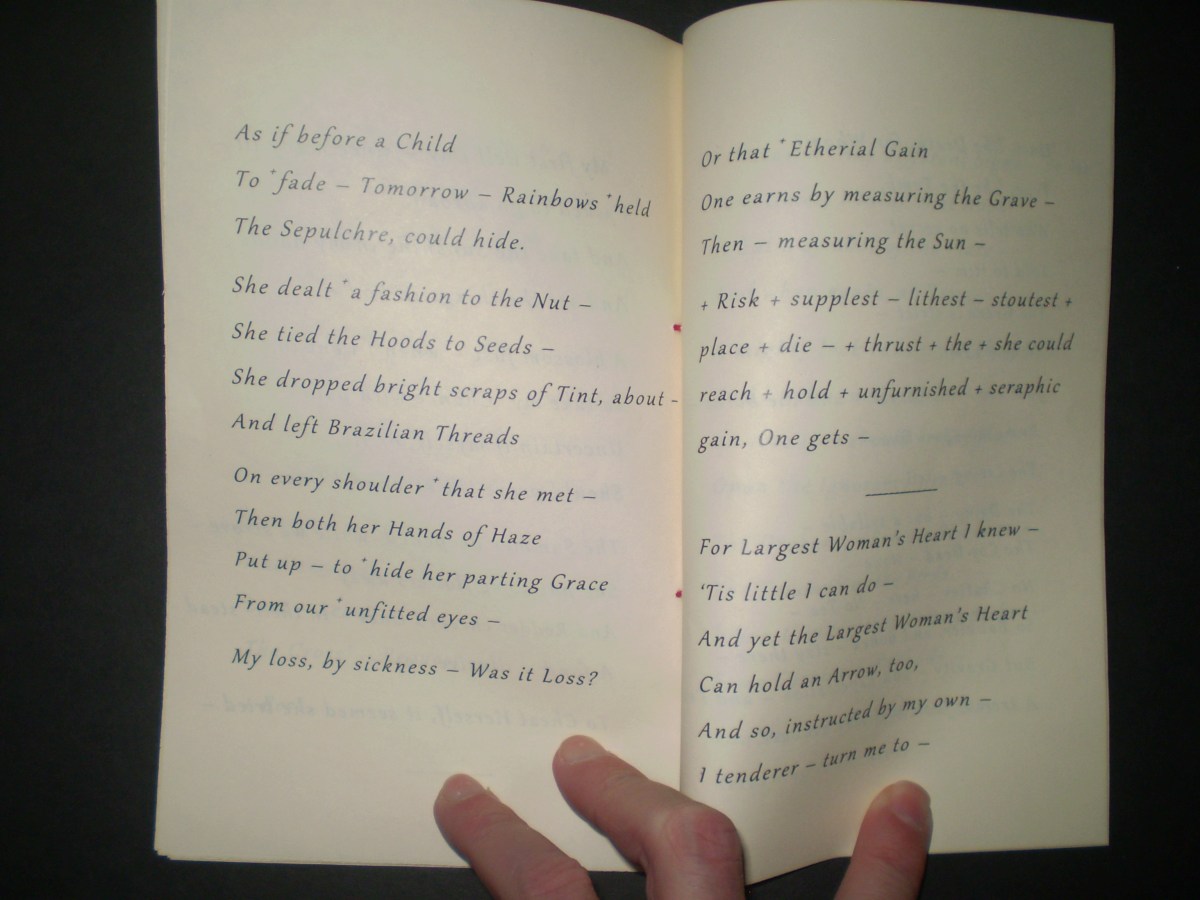 As if before a Child
To +fade – Tomorrow – Rainbows +held
The Sepulchre, could hide.
She dealt +a fashion to the Nut –
She tied the Hoods to Seeds –
She dropped bright scraps of Tint, about –
And left Brazilian Threads
On every shoulder +that she met –
Then both her Hands of Haze
Put up – to +hide her parting Grace
From our +unfitted eyes –
My loss, by sickness – Was it Loss?
Or that +Etherial Gain
One earns by measuring the Grave –
Then – measuring the Sun –
+ Risk + supplest – lithest – stoutest +
place + die – + thrust + the + she could
reach + hold + unfurnished + seraphic
gain, One gets –
For Largest Woman's Heart I knew –
'Tis little I can do –
And yet the Largest Woman's Heart
Can hold an Arrow, too,
And so, instructed by my own –
I tenderer – turn me to –